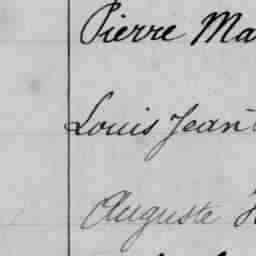 Pierre Ma
Louis Jean
Auguste